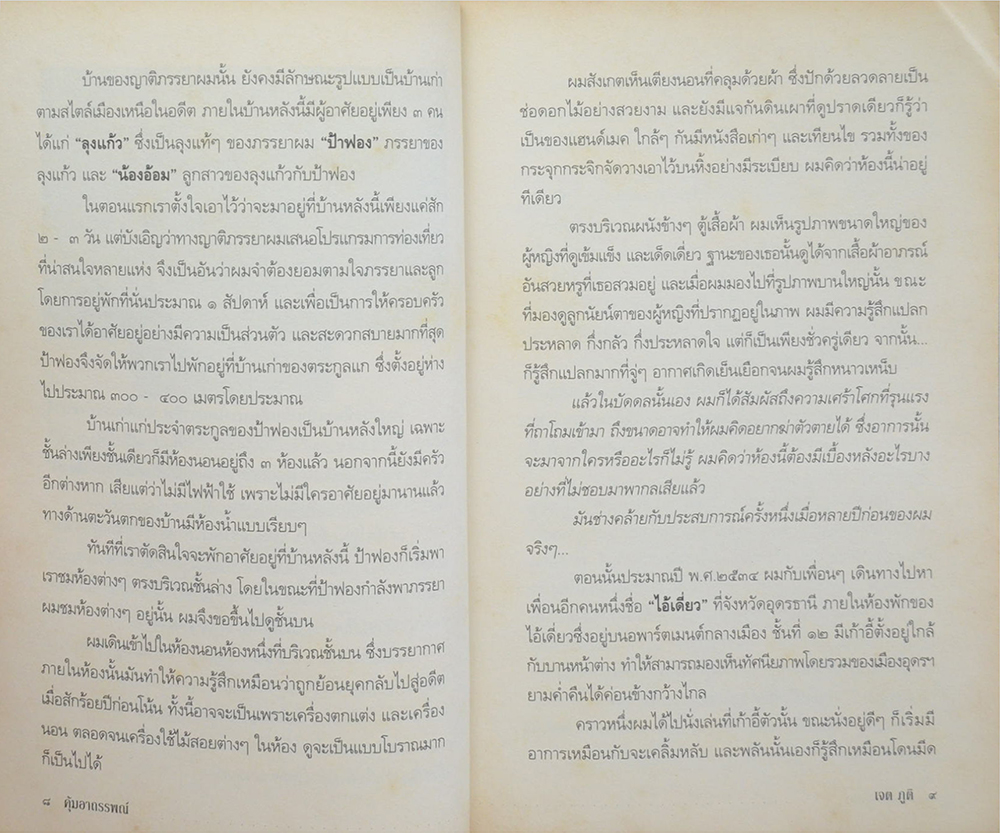 บ้านของญาติภรรยาผมนั้น ยังคงมีลักษณะรูปแบบเป็นบ้านเก่า
ตามสไตล์เมืองเหนือในอดีต ภายในบ้านหลังนี้มีผู้อาศัยอยู่เพียง ๓ คน
ได้แก่ “ลุงแก้ว” ซึ่งเป็นลุงแท้ๆ ของภรรยาผม “ป้าฟอง” ภรรยาของ
ลุงแก้ว และ “น้องอ้อม” ลูกสาวของลุงแก้วกับป้าฟอง
ในตอนแรกเราตั้งใจเอาไว้ว่าจะมาอยู่ที่บ้านหลังนี้เพียงแค่สัก
๒ - ๓ วัน แต่บังเอิญว่าทางญาติภรรยาผมเสนอโปรแกรมการท่องเที่ยว
ที่น่าสนใจหลายแห่ง จึงเป็นอันว่าผมจำต้องยอมตามใจภรรยาและลูก
โดยการอยู่พักที่นั่นประมาณ ๑ สัปดาห์ และเพื่อเป็นการให้ครอบครัว
ของเราได้อาศัยอยู่อย่างมีความเป็นส่วนตัว และสะดวกสบายมากที่สุด
ป้าฟองจึงจัดให้พวกเราไปพักอยู่ที่บ้านเก่าของตระกูลแก ซึ่งตั้งอยู่ห่าง
ไปประมาณ ๓๐๐ - ๔๐๐ เมตรโดยประมาณ
บ้านเก่าแก่ประจำตระกูลของป้าฟองเป็นบ้านหลังใหญ่ เฉพาะ
ชั้นล่างเพียงชั้นเดียวก็มีห้องนอนอยู่ถึง ๓ ห้องแล้ว นอกจากนี้ยังมีครัว
อีกต่างหาก เสียแต่ว่าไม่มีไฟฟ้าใช้ เพราะไม่มีใครอาศัยอยู่มานานแล้ว
ทางด้านตะวันตกของบ้านมีห้องน้ำแบบเรียบๆ
ทันทีที่เราตัดสินใจจะพักอาศัยอยู่ที่บ้านหลังนี้ ป้าฟองก็เริ่มพา
เราชมห้องต่างๆ ตรงบริเวณชั้นล่าง โดยในขณะที่ป้าฟองกำลังพาภรรยา
ผมชมห้องต่างๆ อยู่นั้น ผมจึงขอขึ้นไปดูชั้นบน
ผมเดินเข้าไปในห้องนอนห้องหนึ่งที่บริเวณชั้นบน ซึ่งบรรยากาศ
ภายในห้องนั้นมันทำให้ความรู้สึกเหมือนว่าถูกย้อนยุคกลับไปสู่อดีต
เมื่อสักร้อยปีก่อนโน้น ทั้งนี้อาจจะเป็นเพราะเครื่องตกแต่ง และเครื่อง
นอน ตลอดจนเครื่องใช้ไม้สอยต่างๆ ในห้อง ดูจะเป็นแบบโบราณมาก
ก็เป็นไปได้
๘ คุ้มอาถรรพณ์
ผมสังเกตเห็นเตียงนอนที่คลุมด้วยผ้า ซึ่งปักด้วยลวดลายเป็น
ช่อดอกไม้อย่างสวยงาม และยังมีแจกันดินเผาที่ดูปราดเดียวก็รู้ว่า
เป็นของแฮนด์เมค ใกล้ๆ กันมีหนังสือเก่าๆ และเทียนไข รวมทั้งของ
กระจุกกระจิกจัดวางเอาไว้บนหิ้งอย่างมีระเบียบ ผมคิดว่าห้องนี้น่าอยู่
ทีเดียว
ตรงบริเวณผนังข้างๆ ตู้เสื้อผ้า ผมเห็นรูปภาพขนาดใหญ่ของ
ผู้หญิงที่ดูเข้มแข็ง และเด็ดเดี่ยว ฐานะของเธอนั้นดูได้จากเสื้อผ้าอาภรณ์
อันสวยหรูที่เธอสวมอยู่ และเมื่อผมมองไปที่รูปภาพบานใหญ่นั้น ขณะ
ที่มองดูลูกนัยน์ตาของผู้หญิงที่ปรากฏอยู่ในภาพ ผมมีความรู้สึกแปลก
ประหลาด กึ่งกลัว กึ่งประหลาดใจ แต่ก็เป็นเพียงชั่วครู่เดียว จากนั้น...
ก็รู้สึกแปลกมากที่จู่ๆ อากาศเกิดเย็นเยือกจนผมรู้สึกหนาวเหน็บ
แล้วในบัดดลนั้นเอง ผมก็ได้สัมผัสถึงความเศร้าโศกที่รุนแรง
ที่ถาโถมเข้ามา ถึงขนาดอาจทำให้ผมคิดอยากฆ่าตัวตายได้ ซึ่งอาการนั้น
จะมาจากใครหรืออะไรก็ไม่รู้ ผมคิดว่าห้องนี้ต้องมีเบื้องหลังอะไรบาง
อย่างที่ไม่ชอบมาพากลเสียแล้ว
มันช่างคล้ายกับประสบการณ์ครั้งหนึ่งเมื่อหลายปีก่อนของผม
จริงๆ...
ตอนนั้นประมาณปี พ.ศ.๒๕๓๔ ผมกับเพื่อนๆ เดินทางไปหา
เพื่อนอีกคนหนึ่งชื่อ “ไอ้เดี่ยว” ที่จังหวัดอุดรธานี ภายในห้องพักของ
ไอ้เดี่ยวซึ่งอยู่บนอพาร์ตเมนต์กลางเมือง ชั้นที่ ๑๒ มีเก้าอี้ตั้งอยู่ใกล้
กับบานหน้าต่าง ทำให้สามารถมองเห็นทัศนียภาพโดยรวมของเมืองอุดรฯ
ยามค่ำคืนได้ค่อนข้างกว้างไกล
คราวหนึ่งผมได้ไปนั่งเล่นที่เก้าอี้ตัวนั้น ขณะนั่งอยู่ดีๆ ก็เริ่มมี
อาการเหมือนกับจะเคลิ้มหลับ และพลันนั้นเองก็รู้สึกเหมือนโดนมีด
เจต ภูติ ๙